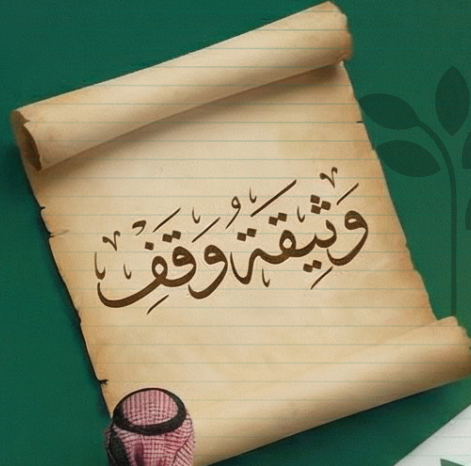 وَثِيقَةُ وَقَفِ